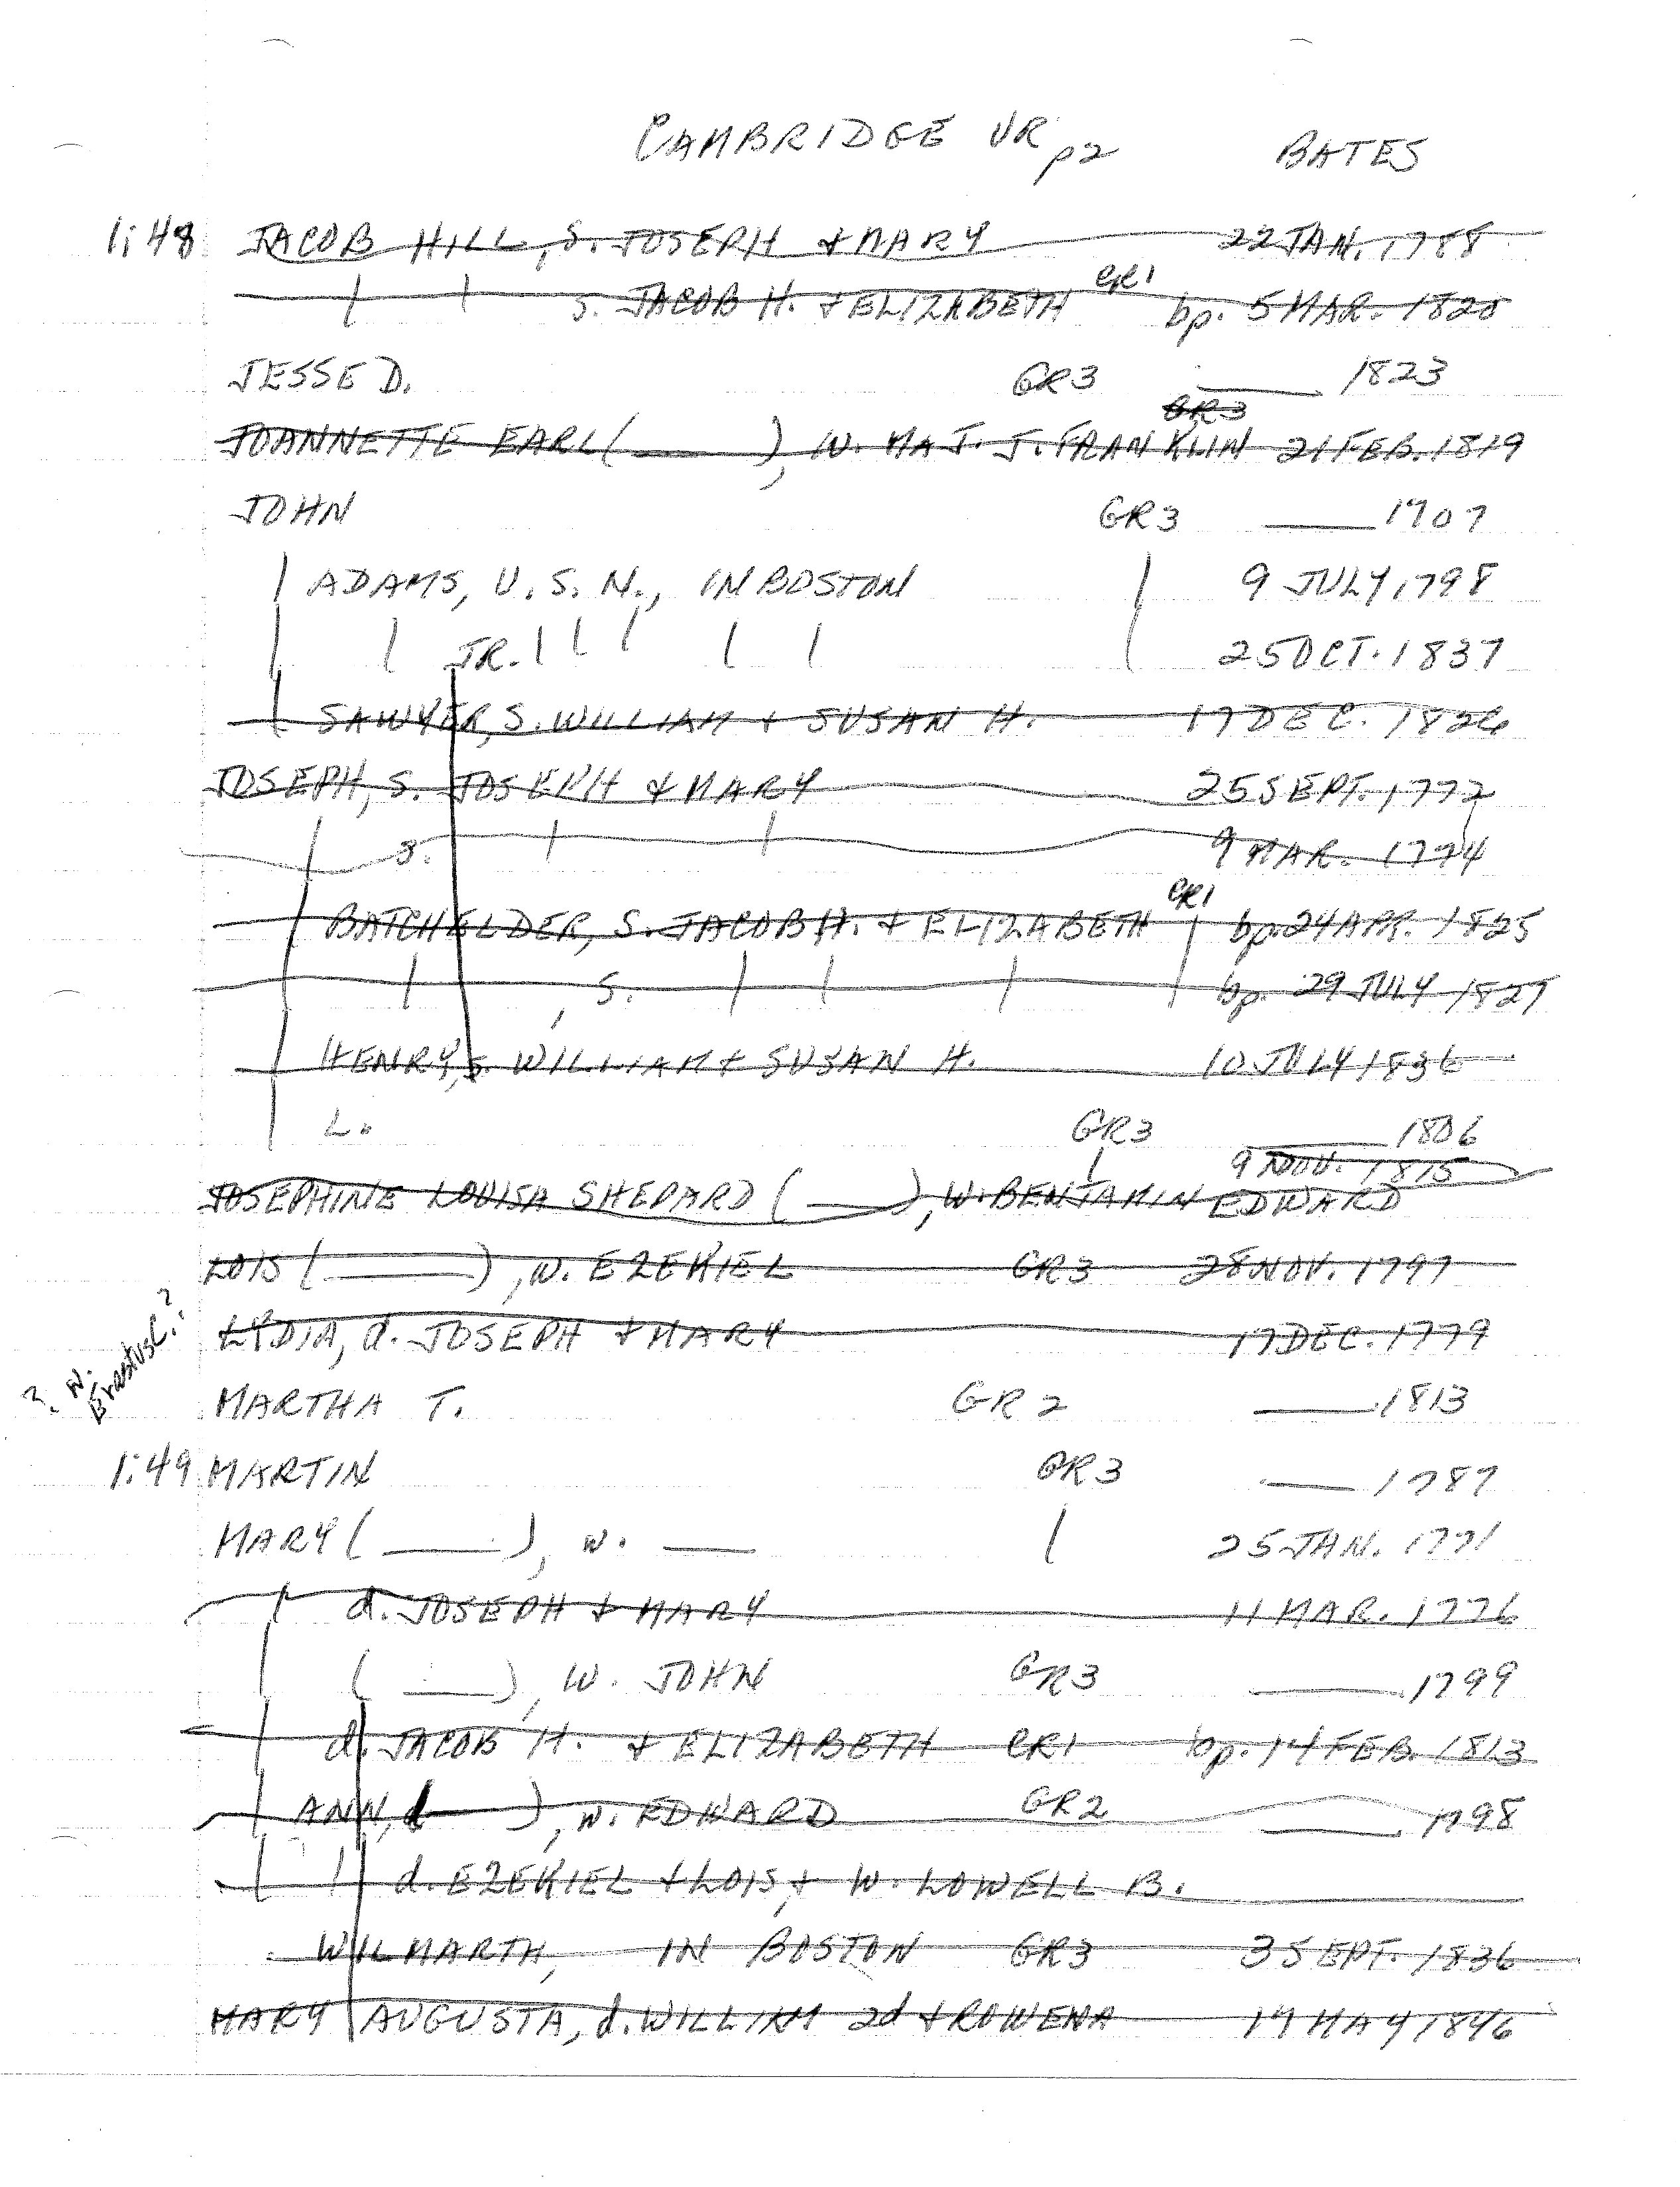 CAMBRIDGE VR p2 BATES
1:48 JACOB HILL, S. JOSEPH & MARY 22 JAN. 1788
| | S. JACOB H. & ELIZABETH CR1 bp. 5 MAR. 1820
JESSE D. GR3 ___ 1823
JOANNETTE EARL (___), W. MAJ. J. FRANKLIN GR3 21 FEB. 1819
JOHN GR3 ___ 1707
| ADAMS, U.S.N., IN BOSTON | 9 JULY 1798
| | JR. | | | | | | 25 OCT. 1837
| SAWYER, S. WILLIAM & SUSAN H. 17 DEC. 1826
JOSEPH, S. JOSEPH & MARY 25 SEPT. 1772
| S. | | 9 MAR. 1774
| BATCHELDER, S. JACOB H. & ELIZABETH CR1 bp. 24 APR. 1825
| | , S. | | | | bp. 29 JULY 1827
| HENRY, S. WILLIAM & SUSAN H. 10 JULY 1836
| L. GR3 ___ 1806
JOSEPHINE LOUISA SHEPARD (___), W. BENJAMIN EDWARD | 9 NOV. 1815
LOIS (___), W. EZEKIEL GR3 28 NOV. 1797
LYDIA, d. JOSEPH & MARY 17 DEC. 1779
? W. Erastus C.? MARTHA T. GR2 ___ 1813
1:49 MARTIN GR3 ___ 1787
MARY (___), W. ___ | 25 JAN. 1771
| d. JOSEPH & MARY 11 MAR. 1776
| (___), W. JOHN GR3 ___ 1799
| d. JACOB H. & ELIZABETH CR1 bp. 14 FEB. 1813
| ANN, (___), W. EDWARD GR2 ___ 1798
| | d. EZEKIEL & LOIS, & W. LOWELL B.
WILMARTH, IN BOSTON GR3 3 SEPT. 1836
MARY AUGUSTA, d. WILLIAM 2d & ROWENA 19 MAY 1846